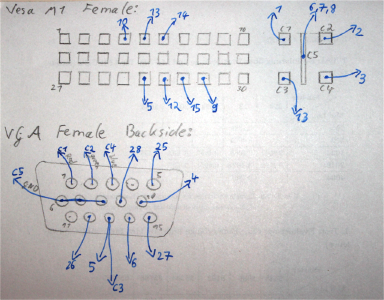 Vesa M1 Female:
13
14
10
1
10
21
30
5
12
15
9
1
6,7,8
C1
C2
2
C5
C3
C4
3
13
VGA Female Backside:
C1
C2
C4
28
25
C5
GND
1
5
4
6
10
11
15
26
5
C3
6
27